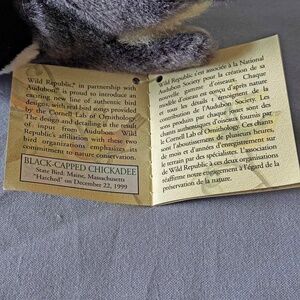 Wild Republic® in partnership with
Audubon® is proud to introduce an
exciting, new line of authentic bird
designs, with real bird songs provided
by the Cornell Lab of Ornithology.
The design and detailing is the result
of input from Audubon. Wild
Republic's affiliation with these two
bird organizations emphasizes its
commitment to nature conservation.
BLACK-CAPPED CHICKADEE
State Bird: Maine, Massachusetts
"Hatched" on December 22, 1999
Wild Republic s'est associée à la National
Audubon Society pour la création de sa
nouvelle gamme d'oiseaux. Chaque
modèle d'oiseau est conçu d'après nature
et tous les détails témoignent de la
contribution de l'Audubon Society. Les
chants authentiques d'oiseaux fournis par
le Cornell Lab of Ornithology. Ces chants
sont l'aboutissement de plusieurs heures,
de mois et d'années d'enregistrement sur
le terrain par des spécialistes. L'association
de Wild Republic à ces deux organisations
réaffirme notre engagement à l'égard de la
préservation de la nature.